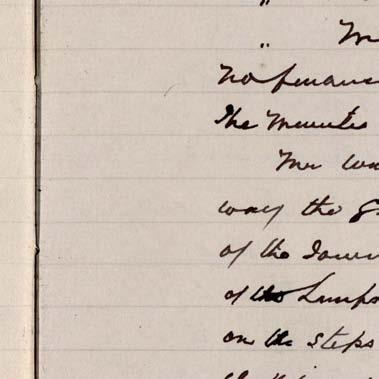 "
" M
No finance
The Minutes
Mr Wa
way the g
of the Town
of the Lumps
on the steps